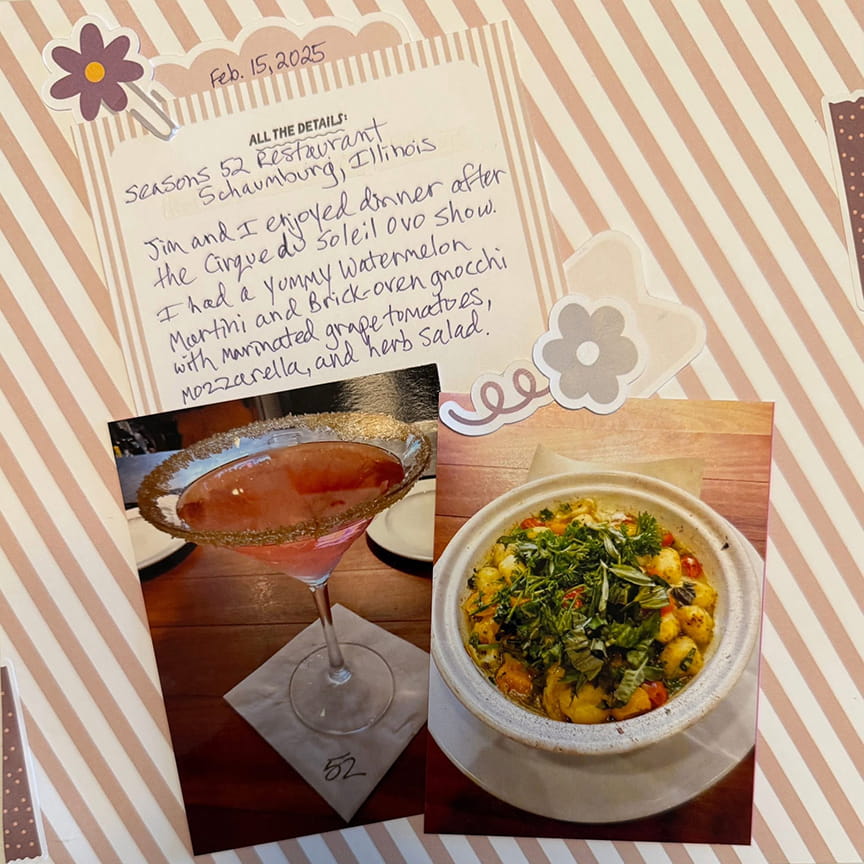 Feb. 15, 2025
ALL THE DETAILS:
Seasons 52 Restaurant
Schaumburg, Illinois
Jim and I enjoyed dinner after
the Cirque du Soleil OVO Show.
I had a yummy Watermelon
Martini and Brick-oven gnocchi
with marinated grape tomatoes,
mozzarella, and herb salad.
52